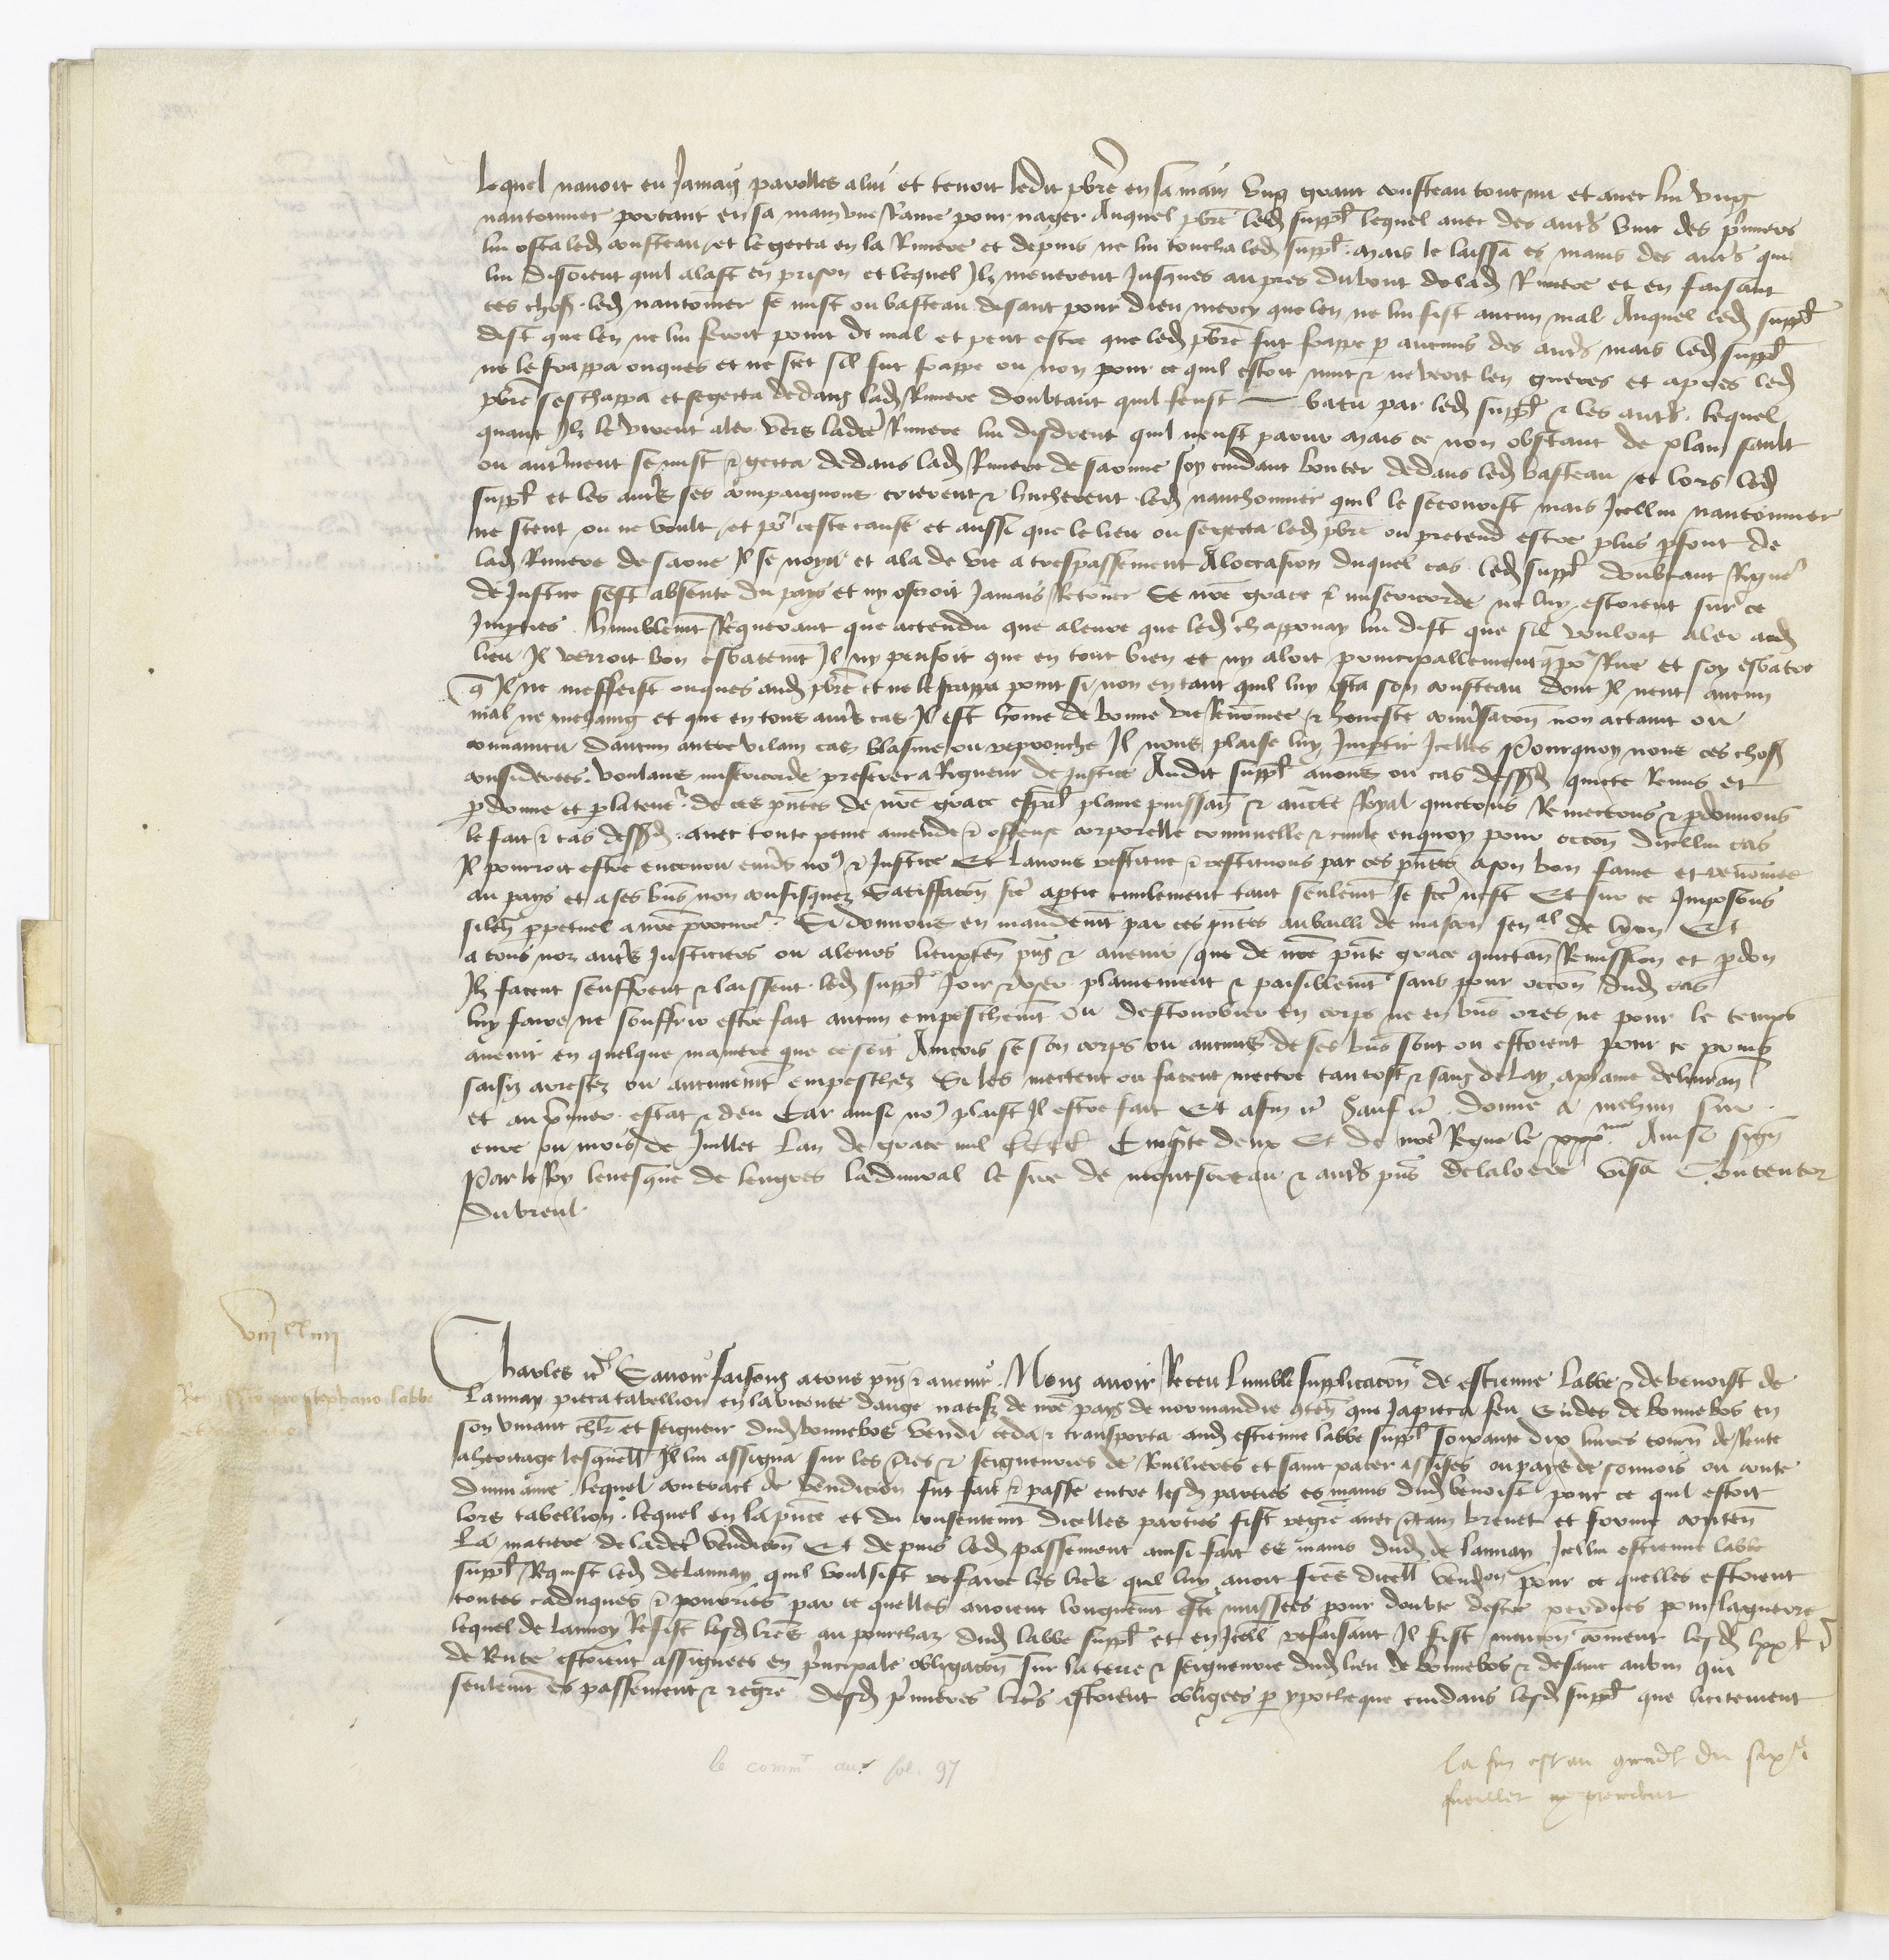 lequel navoit eu Jamais parolles a lui et tenoit ledit pbre en sa main ung grant cousteau tout nu et avec lui ung
nautonnier portant en sa main une Rame pour nager Auquel pbre led suppl lequel avec des autrs vint des prmiers
lui osta led cousteau et le gecta en la Riviere et depuis ne lui toucha led suppl mais le laissa es mains des autrs qui
lui disoient quil alast en prison et lequel Ilz menerent Jusques au pres du bout de lad Riviere et en faisant
ces chos led nautonier se mist ou basteau disant pour dieu mercy que len ne lui fist aucun mal Auquel led suppl
dist que len ne lui feroit point de mal et peut estre que led pbre fut frappe p aucuns des autrs mais led suppl
ne le frappa onques et ne scet sil fut frappe ou non pour ce quil estoit nuit et ne veoit len gueres et apres led
pbre seschappa et se gecta dedans lad Riviere doubtant quil feust batu par led suppl et les autrs lequel
quant Ilz le virent aler vers ladcte Riviere lui disdrent quil neust paour mais ce non obstant de plain sault
ou autrment se mist et gecta dedans lad Riviere de saonne soy cuidant bouter dedans led basteau et lors led
suppl et les autrs ses compaignons crierent et hucherent led nauthonnier quil le secourist mais Icellui nautonnier
ne sceut ou ne voult et pr ceste cause et aussi que le lieu ou se gecta led pbre on pretend estre plus pfont de
lad Riviere de saone Il se noya et ala de vie a trespassement A loccasion duquel cas led suppl doubtant Riguer
de Justice sest absente du pays et ny oseroit Jamais Retorner se nre grace et misericorde ne luy estoient sur ce
Impties humblemt Requerant que actendu que aleure que led chapponay lui dist que sil vouloit aler aud
lieu Il verroit bon esbatemt Il ny pensoit que en tout bien et ny aloit principallement q por Rire et soy esbatre
q Il ne meffeist onques aud pbre et ne le frappa point si non en tant quil luy osta son cousteau dont Il neut aucun
mal ne mehaing et que en tous autrs cas Il est home de bonne vie Renommee et honeste convsacon non actaint ou
convaincu daucun autre vilain cas blasme ou reprouche Il nous plaise luy Imptir Icelles Pourquoy nous ces chos
considerees voulans misericorde preferer a Rigueur de Justice Audit suppl avons ou cas dessd quicte Remis et
pdonne et p la teneur de ces pntes de nre grace espal plaine puissan et auctte Royal quictons Remectons et pdonnons
le fait et cas dessd avec toute peine amende et offense corporelle criminelle et civile en quoy pour occon dicellui cas
Il pourroit estre encouru envrs nos et Justice Et lavons restitue et restituons par ces pntes a son bon fame et renomee
au pays et a ses bns non confisquez Satiffacon fce a ptie civilement tant seulemt se fce nest Et sur ce Imposons
silen ppetuel a nre procureur Si donnons en mandemt par ces pntes au bailli de mascon senal de lyon Et
a tous noz autrs Justiciers ou a leurs lieuxten pns et avenir que de nre pnte grace quictan Remission et pdon
Ilz facent seuffrent et laissent led suppl Joir et user plainement et paisiblemt sans pour occon dud cas
luy faire ne souffrir estre fait aucun empeschemt ou destourbier en corps ne en bns ores ne pour le temps
avenir en quelque maniere que ce soit Aincois se son corps ou aucuns de ses bns sont ou estoient pour ce prins
saisiz arrestez ou autremt empeschez Si les mectent ou facent mectre tantost et sans delay a plaine delivran
et au prmier estat et deu Car ainsi nos plaist Il estre fait Et afin etc Sauf etc donne a mehun sur
evre ou mois de Juillet Lan de grace mil CCCC Cinqte deux Et de nre Regne le xxxme Ainsi sign
Par le Roy levesque de lengres ladmiral le sire de montsoreau et autrs pns delaloere visa Contentor
Dubreul
viiixx iiii
Remissio pro stephano labbe
Charles etc Savoir faisons a tous pns et avenir Nous avoir Receu lumble supplicacon de estienne labbe et de benoist de
Launay pieca tabellion en la viconte dauge natifz de nre pays de normandie conten que Ja pieca feu Eudes de bonnebos en
son vivant chlr et seigneur dud bonnebos vendi ceda et transporta aud estienne labbe suppl soixante dix livres tourn de Rente
a heritage lesquell Il lui assigna sur les tres et seigneuries de Rullieres et saint pater assises ou pays de sonnois ou conte
du maine lequel contract de vendicion fut fait et passe entre lesd parties es mains dud benoist pour ce quil estoit
lors tabellion lequel en la pnce et du consentemt dicelles parties fist regre avec ctain brevet et forme conten
La matiere de ladcte vendicon Et depuis led passement ainsi fait es mains dud de launay Icellui estienne labbe
suppl Requist led de launay quil voulsist refaire les lres quil luy avoit fctes dicell vendon pour ce quelles estoient
toutes caduques et pourries par ce quelles avoient longuemt este mussees pour doubte destre perdues pour la guerre
lequel de launoy Refist lesd lres au pourchaz dud labbe suppl et en Icell refaisant Il fist mancon coment lesd lxx l t
de Rente estoient assignees en principale obligacon sur la terre et seigneurie dud lieu de bonnebos et de saint aubin qui
seulemt es passement et regre desd prmieres lres estoient obligees p ypotheque cuidans lesd suppl que licitement
le commt au fol. 97
la fin est au
fueillet